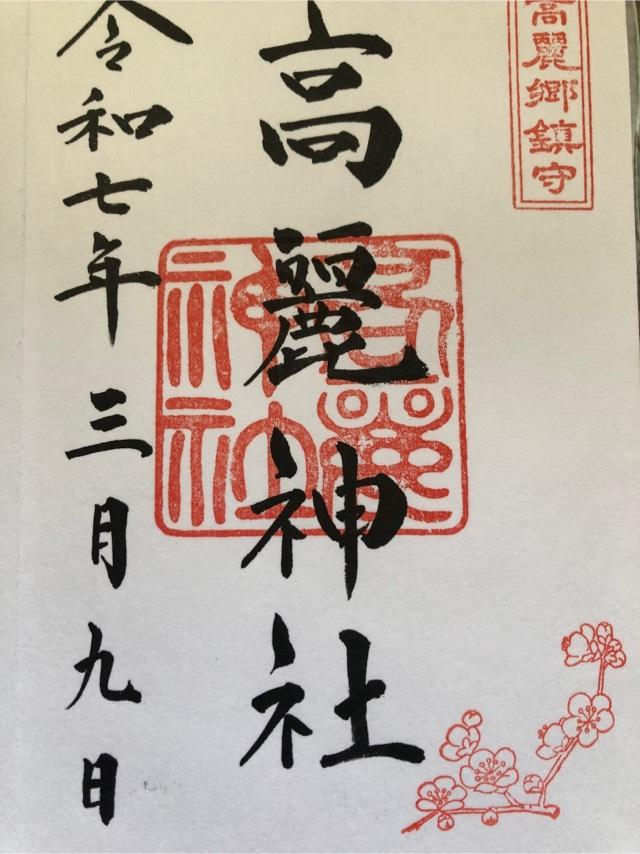 高麗郷鎮守
高麗神社
高麗神社
令和七年三月九日